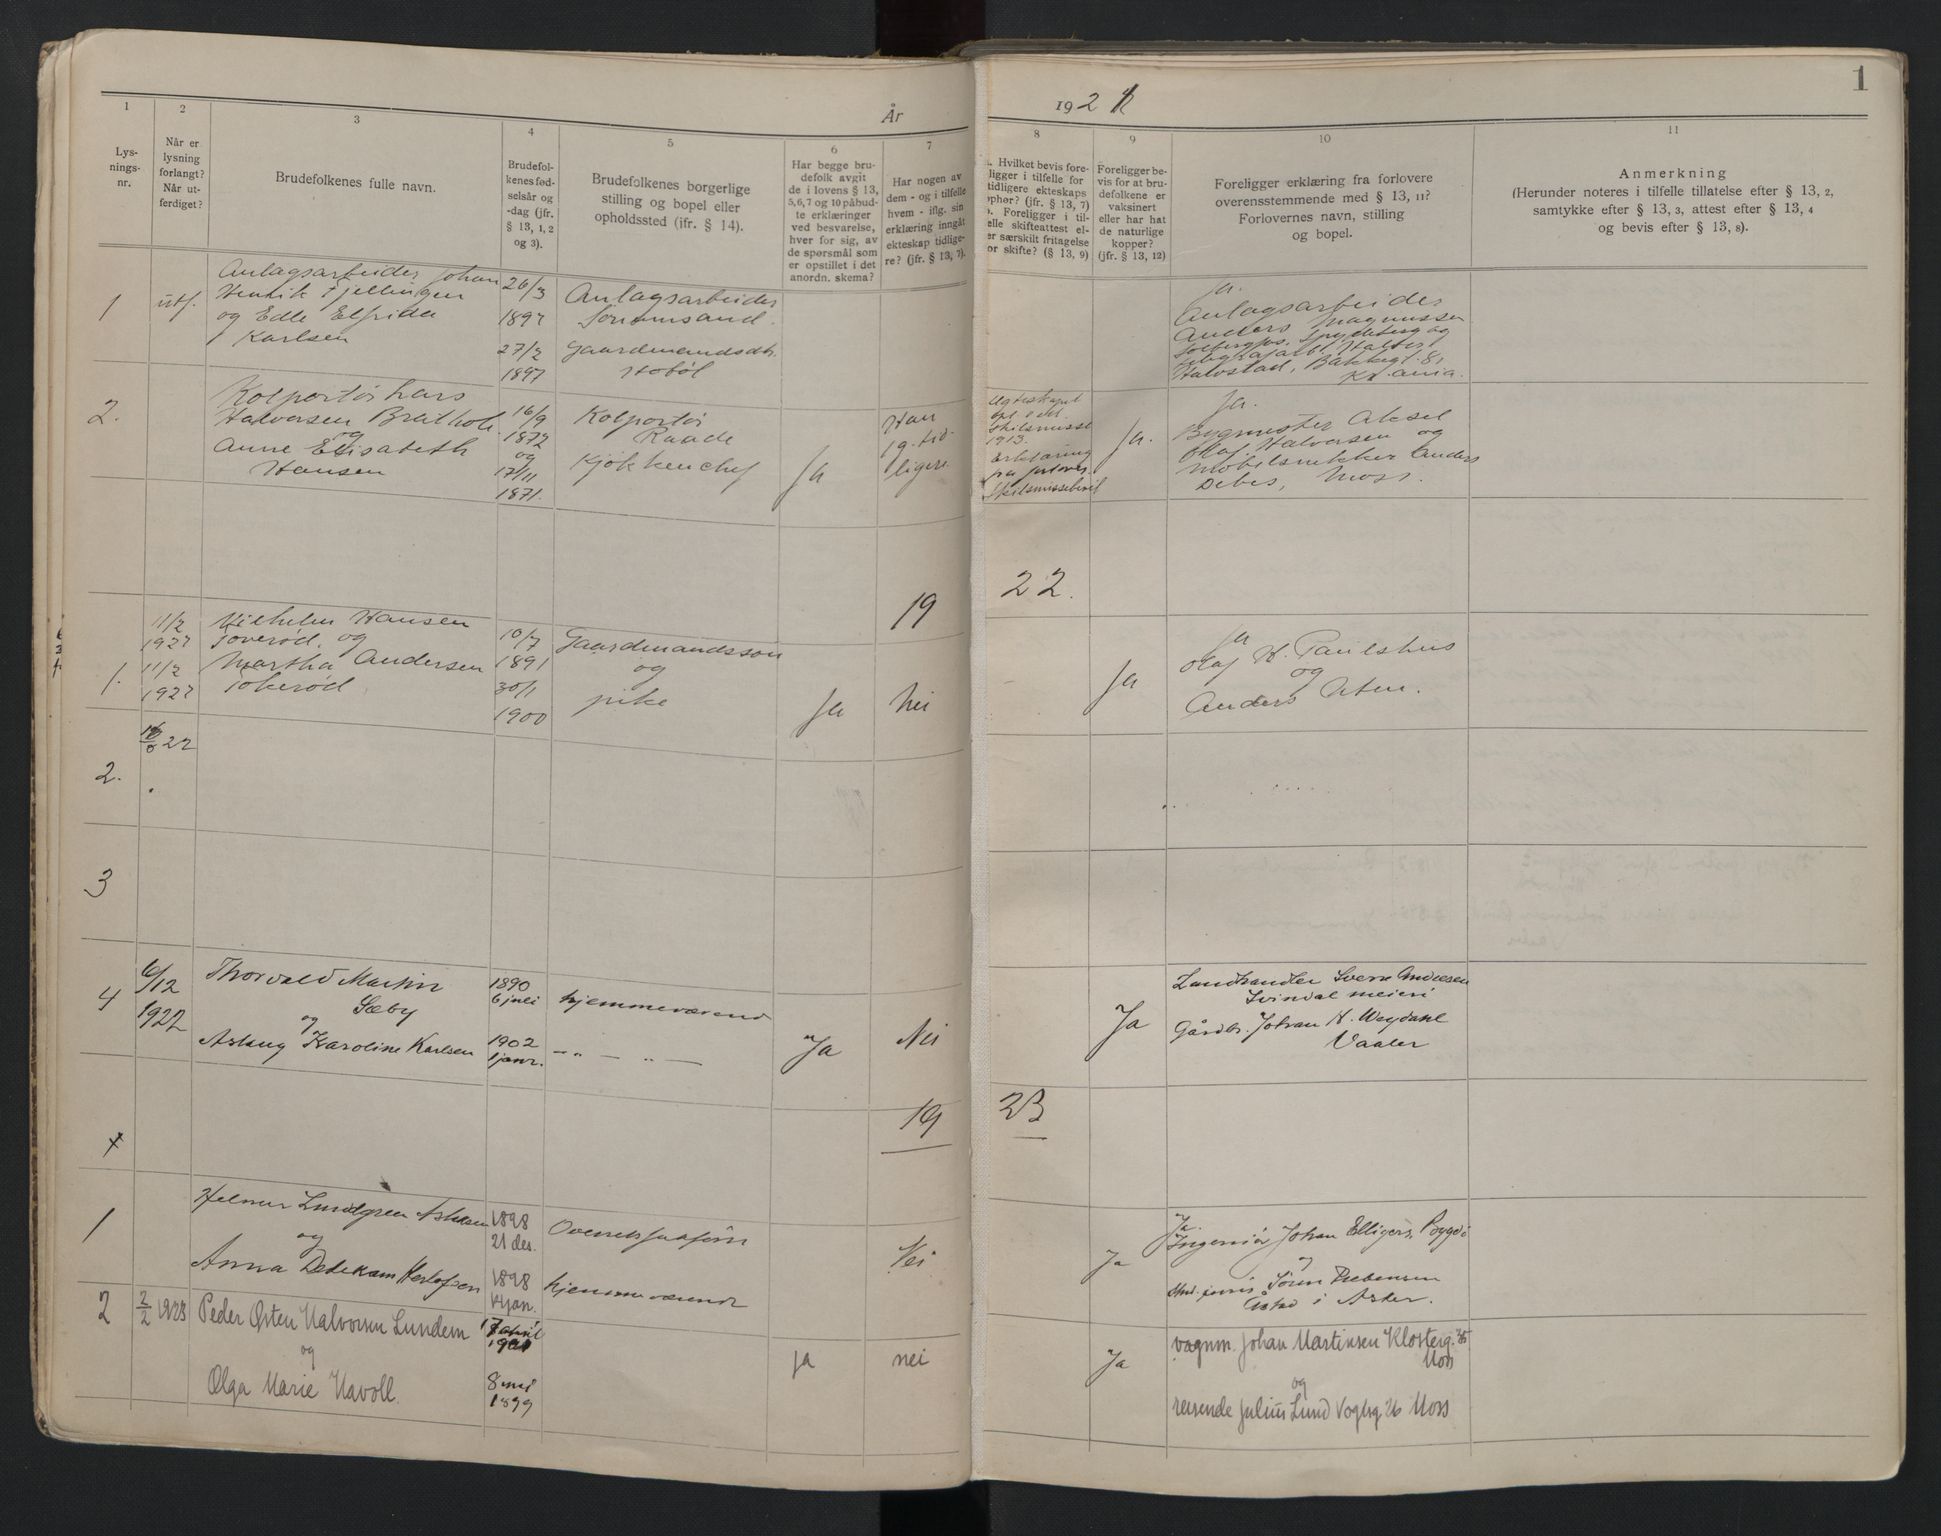 År 192
1
1 2 3 4 5 6 7 8 9 10 11
Lys-
nings-
nr.
Når er
lysning
forlangt?
Når ut-
ferdiget?
Brudefolkenes fulle navn.
Brudefol-
kenes fød-
selsår og
-dag (jfr.
§ 13, 1, 2
og 3).
Brudefolkenes borgerlige
stilling og bopel eller
opholdssted (jfr. § 14).
Har begge bru-
defolk avgit
de i lovens § 13,
5,6,7 og 10 påbud-
te erklæringer
ved besvarelse,
hver for sig, av
de spørsmål som
er opstillet i det
anordn. skema?
Har nogen av
dem - og i tilfelle
hvem - iflg. sin
erklæring inngåt
ekteskap tidlige-
re? (jfr. § 13, 7).
Hvilket bevis fore-
ligger i tilfelle for
tidligere ekteskaps
ophør? (jfr. § 13, 7)
Foreligger i til-
elle skifteattest el-
er særskilt fritagelse
or skifte? (§ 13, 9)
Foreligger be-
vis for at bru-
defolkene er
vaksinert
eller har hat
de naturlige
kopper?
(jfr. § 13, 12)
Foreligger erklæring fra forlovere
overensstemmende med § 13, 11?
Forlovernes navn, stilling
og bopel.
Anmerkning
(Herunder noteres i tilfelle tillatelse efter § 13, 2,
samtykke efter § 13, 3, attest efter § 13, 4
og bevis efter § 13, 8).
1
utf.
Anlagsarbeider Johan
Henrik Fjellingen
og Edle Elfrida
Karlsen
26/3
1897
27/2
1897
Anlagsarbeider
Gaardmandsdtr.
Hobøl
Ja.
Anlagsarbeider
Anders Magnussen
Spydeberg og
Halvstad, Bakkegt. 8,
Kr.ania.
2.
Kolportør Hans
Halvorsen Bråthole
og
Anne Elisabeth
Hansen
16/9
1872
og
17/11
1871.
Kolportør
Raade
Kjøkkenchef
Ja
Han
tid-
ligere.
1913.
Erklæring
Skilsmissebevil
Ja.
Ja.
Bygmester Aksel
Olaf Halvorsen og
Møbelsnekker Anders
Debes, Moss.
19 22.
1.
11/2
1922
11/2
1922
Vilhelm Hansen
Toverød, og
Martha Andersen
Tokerød
10/7
1891
30/1
1900
Gaardmandssøn
og
pike
Ja
Nei
Ja
Ja
Olaf H. Paulshus
og
Anders Uten.
2.
22
3
4
6/12
1922
Thorvald Martin
Sæby
og
Aslaug Karoline Karlsen
1890
6 juli
1902
1 janr.
hjemmeværend
— „ — „ —
Ja
Nei
Ja
Landhandler Sverre Andresen
Svindal meieri
Gårdbr. Johan H. Weydahl
Vaaler
19 23
1
Helmer Lundgren
og
Anna Dedekam
1898
21 des.
1898
jan.
hjemmeværende
Nei
Ja
Ja.
Ingeniør Johan Elligers, Bygdø
og
Stud. juris Søren Prebensen
i Asker.
2
2/2 1923
Peder Østen Halvorsen Lundem
og
Olga Marie Havoll.
17
april
8 mai
1899
ja
nei
Ja
vognm. Johan Martinsen Klosterg. 35
Moss
og
reisende Julius Lund Voglsg. 26 Moss